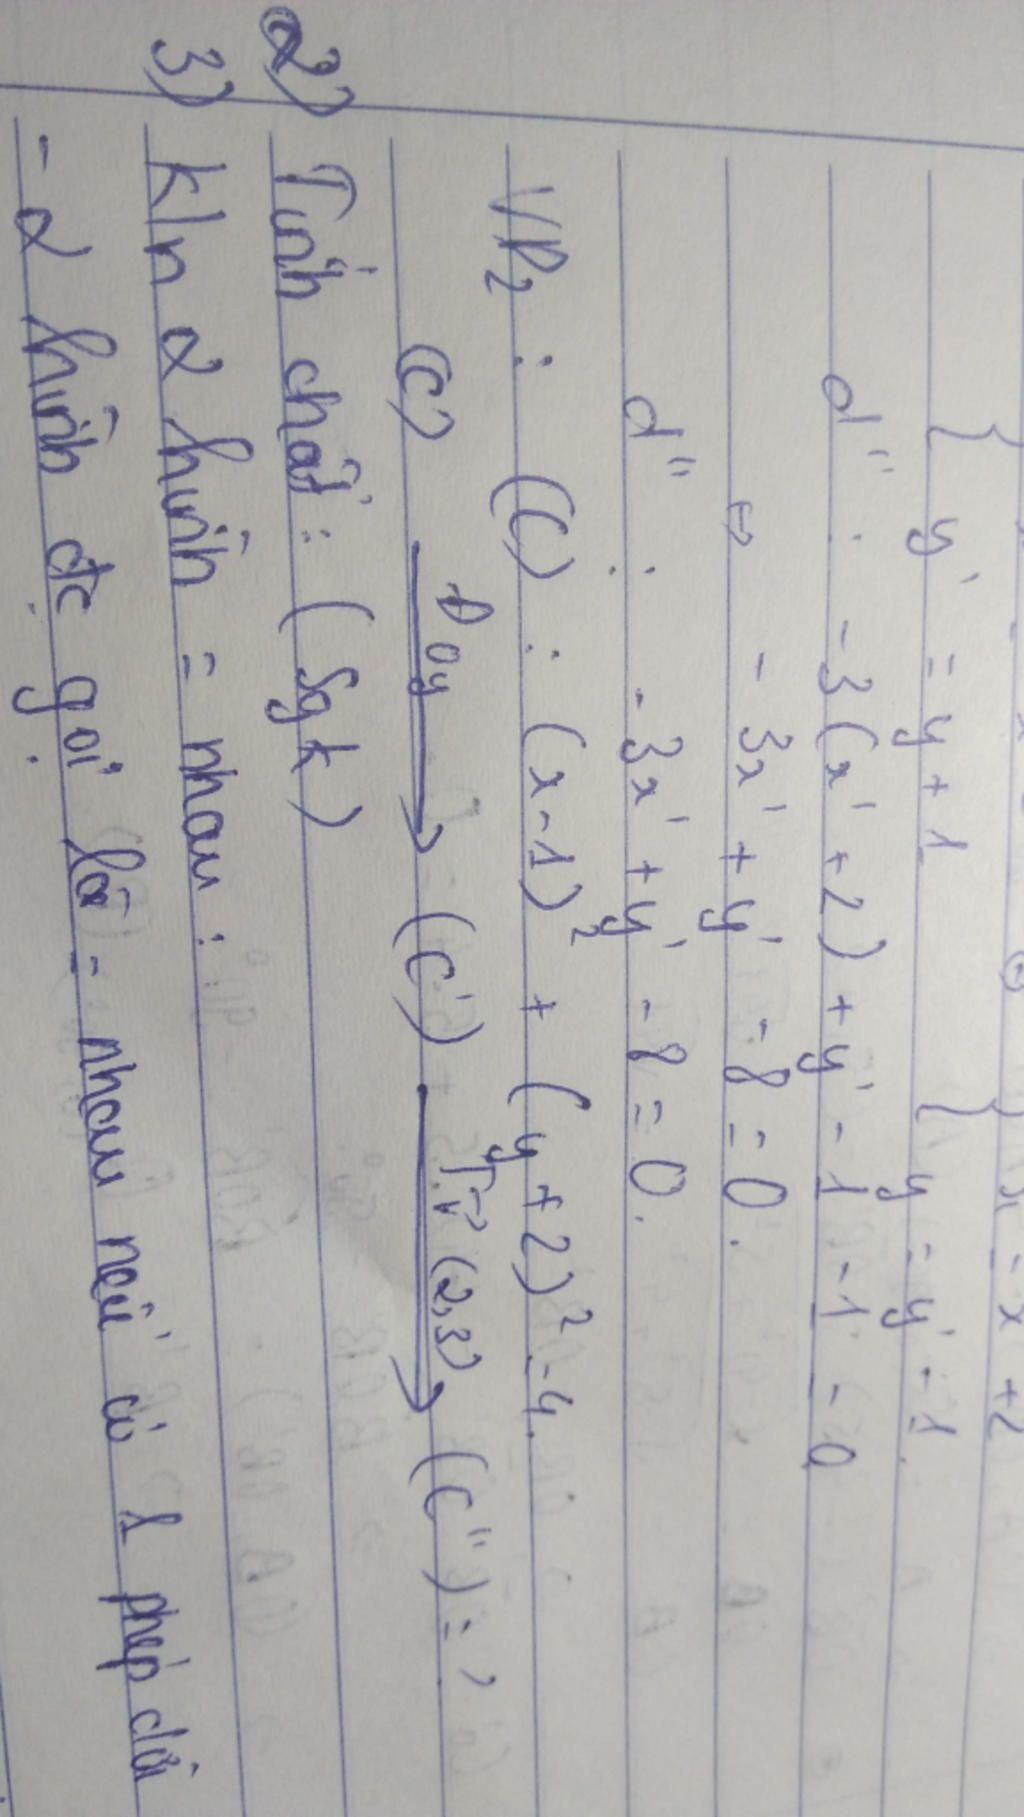 y' = y + 1 y = y' - 1
d'' : -3(x' + 2) + y' - 1 - 1 = 0
⇔ - 3x' + y' - 8 = 0.
d'' : - 3x' + y' - 8 = 0.
VD₂ : (C) : (x-1)² + (y+2)² = 4.
(C) Đoy (C') Tv⃗ (2,3) (C'') = ?
2) Tính chất : (Sgk)
3) K/n 2 hình = nhau :
- 2 hình đc gọi là = nhau nếu có 1 phép dời